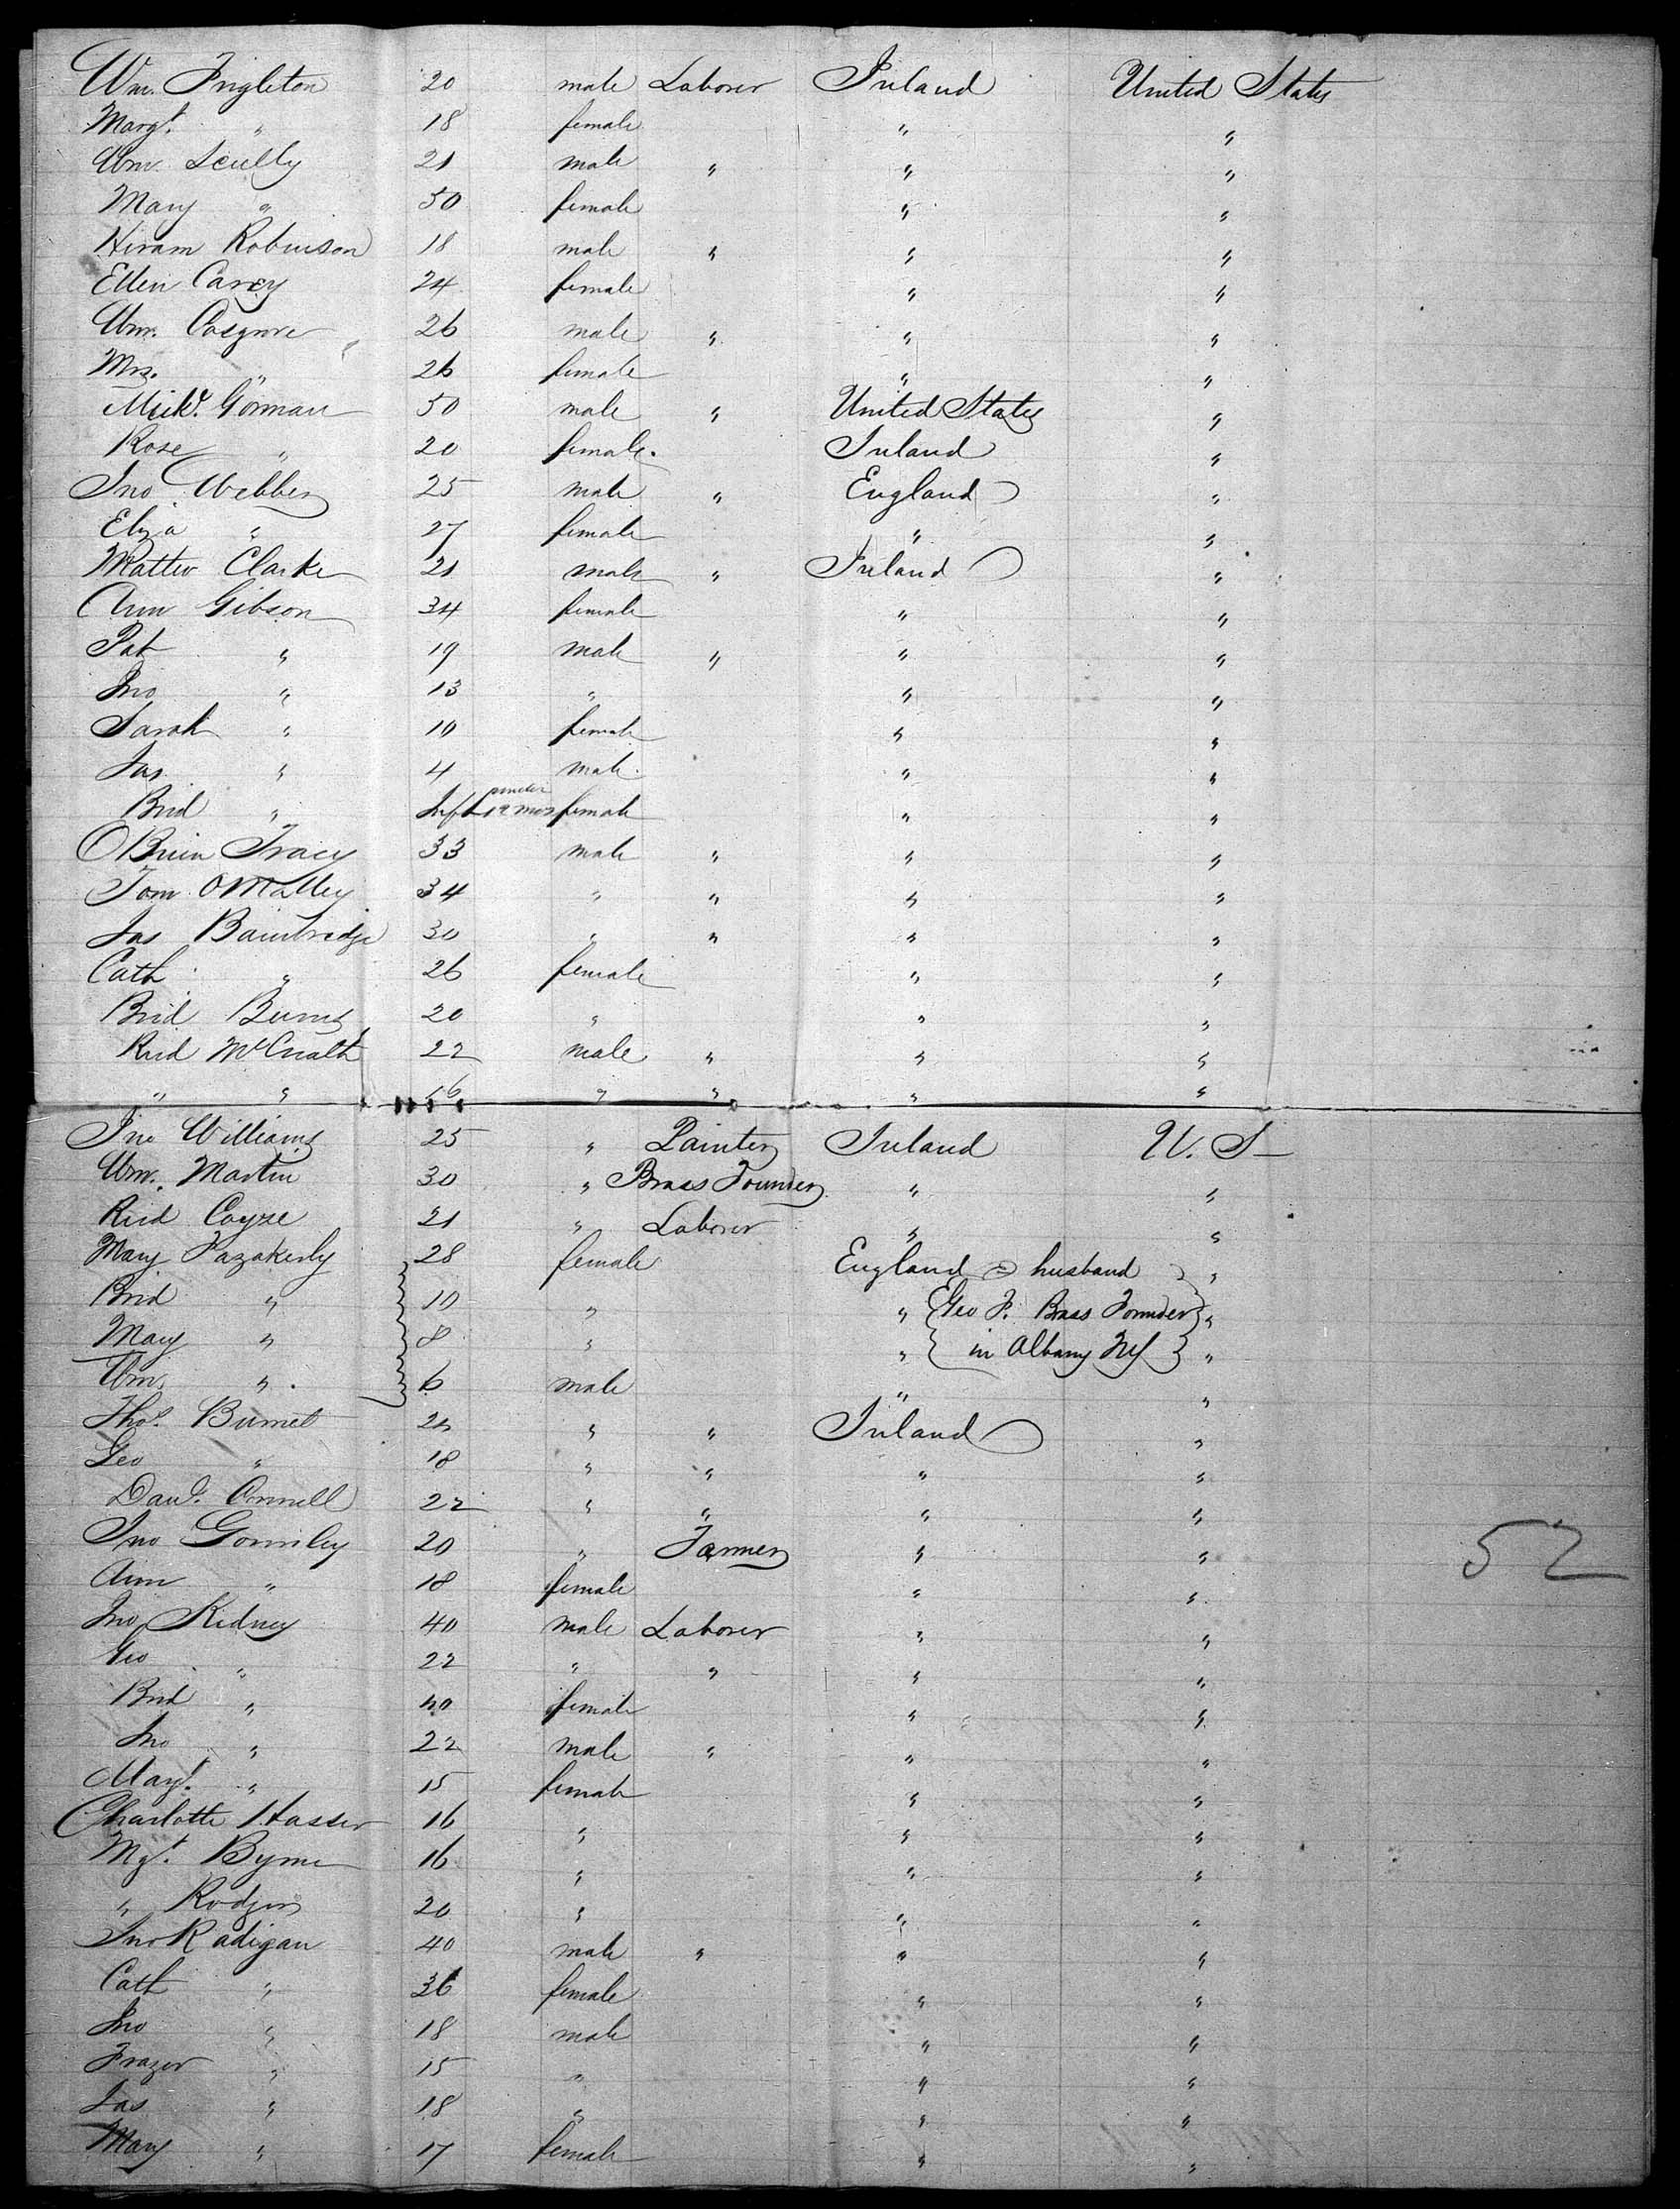 Wm. Singleton 20 male Laborer Ireland United States
Margt. " 18 female " "
Wm. Scully 21 male " " "
Mary " 50 female " "
Hiram Robinson 18 male " " "
Ellen Carey 24 female " "
Wm. Cosgrove 26 male " " "
Mrs. " 26 female " "
Michl. Gorman 50 male " United States "
Rose " 20 female. Ireland "
Jno Webber 25 male " England "
Eliza " 27 female " "
Matteo Clarke 21 male " Ireland "
Ann Gibson 34 female " "
Pat " 19 male " " "
Jno " 13 " " "
Sarah " 10 female " "
Jas " 4 male. " "
Brid " Inft under 12 mos female " "
OBrien Tracy 33 male " " "
Tom OMalley 34 " " " "
Jas Bainbridge 30 " " " "
Cath " 26 female " "
Brid Burns 20 " " "
Rich McCrath 22 male " " "
" " 16 " " " "
Jno Williams 25 " Painter Ireland U. S
Wm. Martin 30 " Brass Founder " "
Rid Coyse 21 " Laborer " "
Mary Fazakerly 28 female England husband "
Brid " 10 " " Geo F. Brass Founder "
Mary " 8 " " in Albany NY "
Wm. " 6 male " "
Thos. Burnet 20 " " Ireland "
Geo " 18 " " " "
Danl. Connell 22 " " " "
Jno Gormley 20 " Farmer " "
Ann " 18 female " "
Jno Kidney 40 male Laborer " "
Geo " 22 " " " "
Brid " 40 female " "
Jno " 22 male " " "
Margt. " 15 female " "
Charlotte Hasser 16 " " "
Mgt. Byrne 16 " " "
" Rodgers 20 " " "
Jno Radigan 40 male " " "
Cath " 36 female " "
Jno " 18 male " "
Frazer " 15 " " "
Jas " 18 " " "
Mary " 17 female " "
52